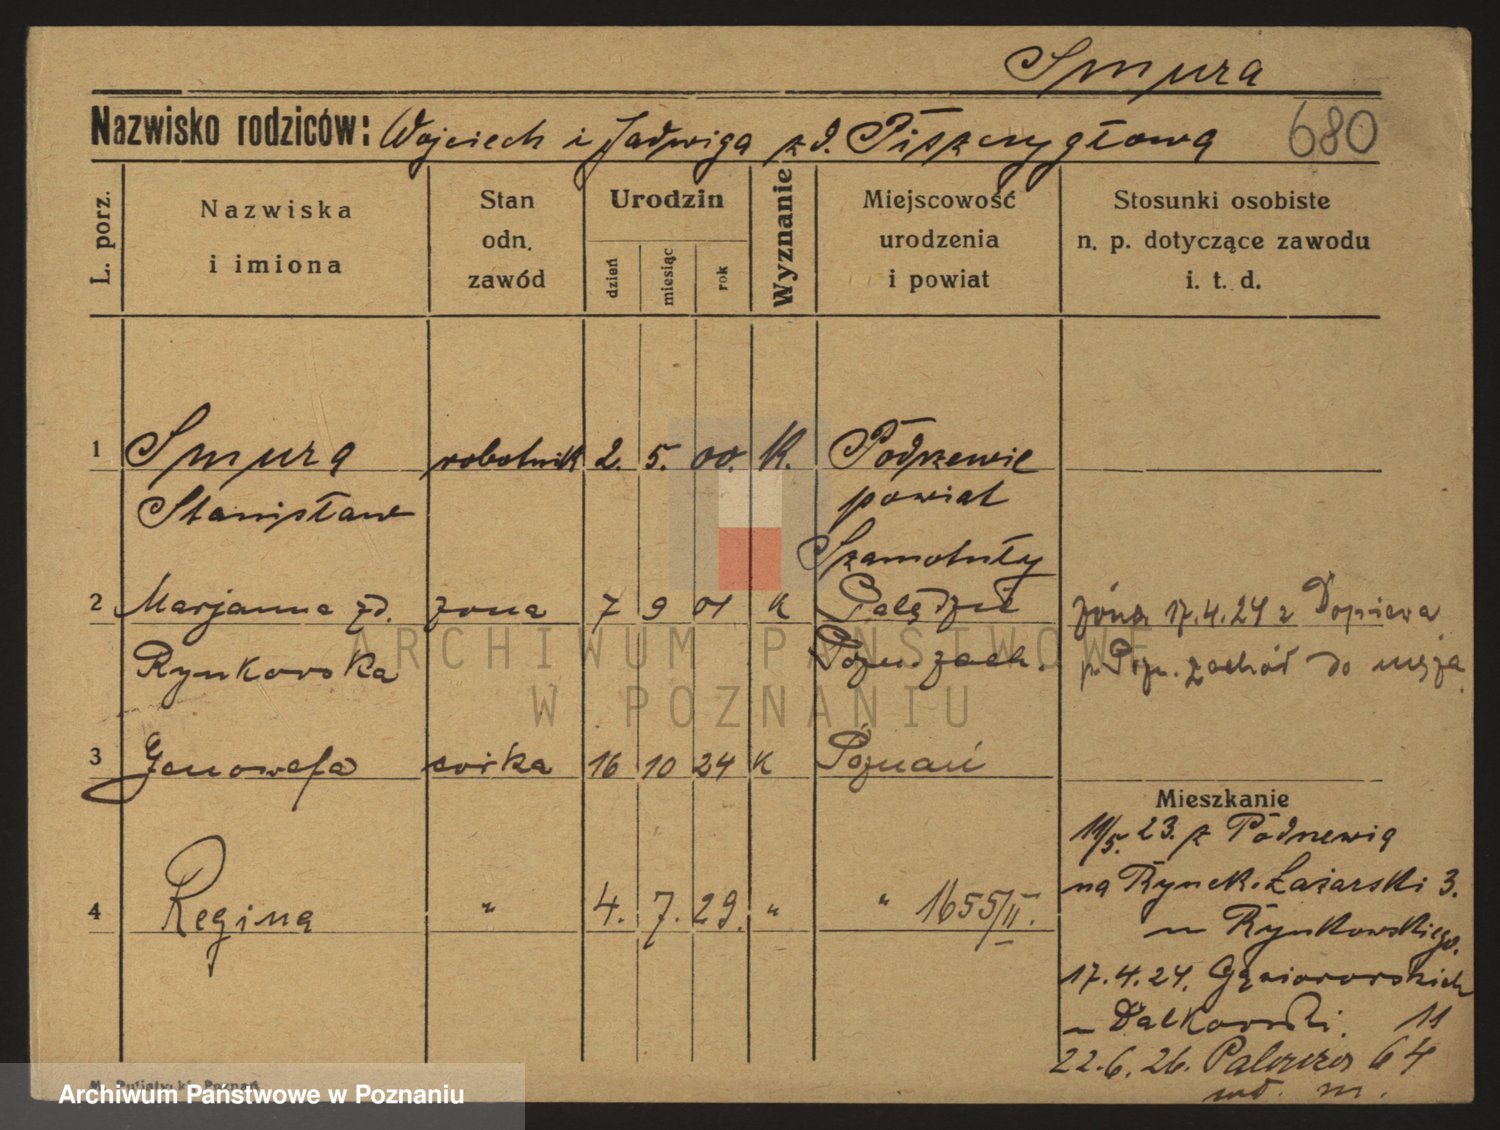 Smura
Nazwisko rodziców: Wojciech i Jadwiga zd. Piszczygłowa
680
L. porz.
Nazwiska
i imiona
Stan
odn.
zawód
Urodzin
dzień
miesiąc
rok
Wyznanie
Miejscowość
urodzenia
i powiat
Stosunki osobiste
n. p. dotyczące zawodu
i. t. d.
1 Smura robotnik 2. 5. 00. K. Podrzewie
Stanisław powiat
Szamotuły
2 Marjanna zd. żona 7 9 01 K Palędzie żona 17.4.24 z Dopiewa
Rynkowska Pozn. zach. p. Pozn. zachód do męża
3 Genowefa córka 16 10 24 K Poznań
Mieszkanie
11/5. 23. z Podrzewia
na Rynek Łazarski 3.
4 Regina " 4. 7. 29. " " 1655/II.
u Rynkowskiego.
17.4.24. Gąsiorowskich
u Dalkowski. 11
22.6.26. Palacza 64
wł. m.
ARCHIWUM PAŃSTWOWE
W POZNANIU
M. Putiatycki, Poznań
Archiwum Państwowe w Poznaniu